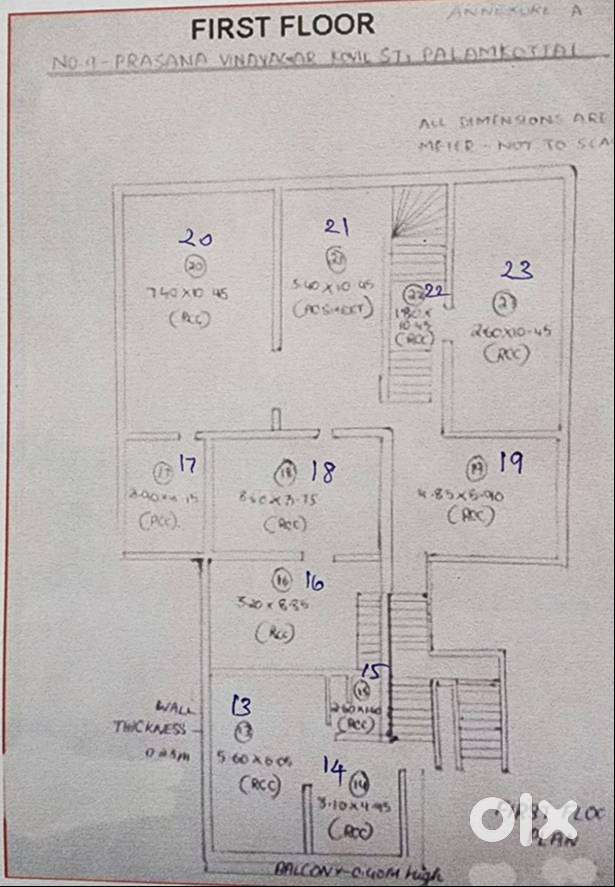 ANNEXURE A
FIRST FLOOR
NO.9-PRASANA VINAYAGAR KOVIL ST, PALAMKOTTAI
ALL DIMENSIONS ARE
METER - NOT TO SCA
20
20
7.40 X 10.45
(RCC)
21
21
5.40 X 10.45
22 22
1.80 X
10.45
(RCC)
23
23
2.60 X 10-45
(RCC)
17 17
(RCC)
18 18
(RCC)
19 19
4.85 X 5.90
(RCC)
16 16
3.20 X 8.85
(RCC)
15
15
(RCC)
WALL
THICKNESS
13
13
5.60 X 6.05
(RCC)
14 14
3.10 X 4.95
(RCC)
BALCONY-0.40M high
FIRST FLOO
PLAN
olx